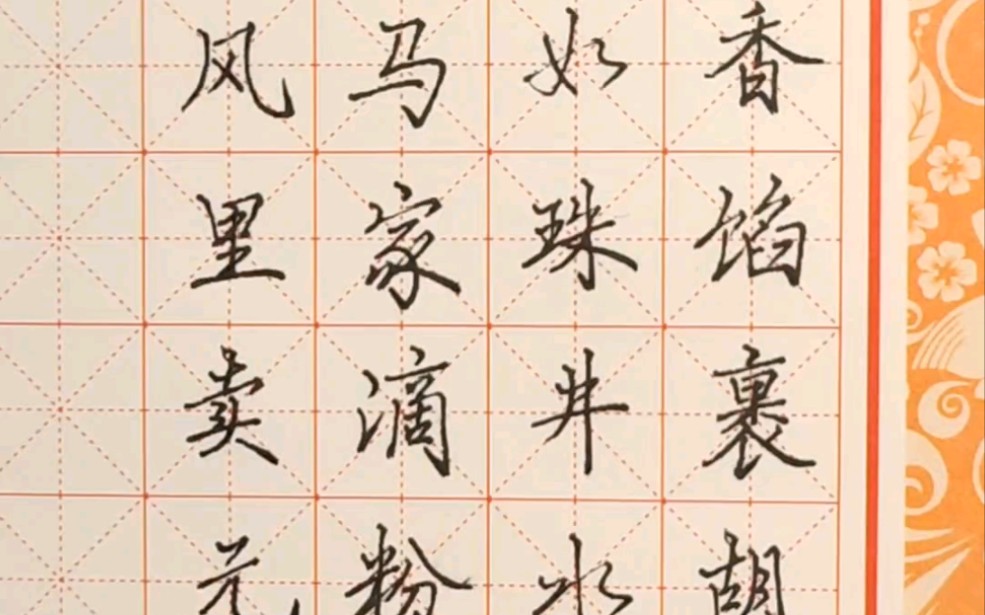 香馅裹胡
如珠井水
马家滴粉
风里卖元